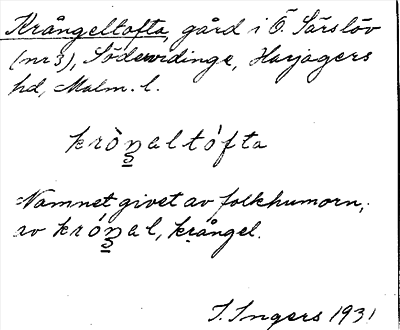 Krångeltofta, gård i Ö. Särslöv
(nr 3), Södervidinge, Harjagers
hd, Malm. l.
kròŋ̲altófta
Namnet givet av folkhumorn,
av króŋ̲al, krångel.
I. Ingers 1931